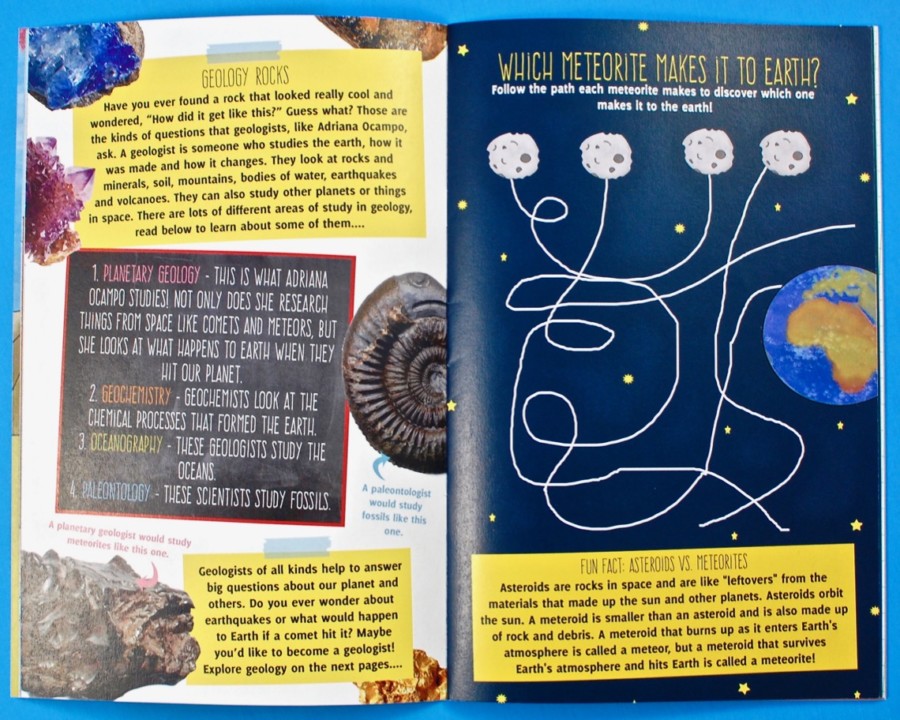 GEOLOGY ROCKS
Have you ever found a rock that looked really cool and
wondered, "How did it get like this?" Guess what? Those are
the kinds of questions that geologists, like Adriana Ocampo,
ask. A geologist is someone who studies the earth, how it
was made and how it changes. They look at rocks and
minerals, soil, mountains, bodies of water, earthquakes
and volcanoes. They can also study other planets or things
in space. There are lots of different areas of study in geology,
read below to learn about some of them....
1. PLANETARY GEOLOGY - THIS IS WHAT ADRIANA
OCAMPO STUDIES! NOT ONLY DOES SHE RESEARCH
THINGS FROM SPACE LIKE COMETS AND METEORS, BUT
SHE LOOKS AT WHAT HAPPENS TO EARTH WHEN THEY
HIT OUR PLANET.
2. GEOCHEMISTRY - GEOCHEMISTS LOOK AT THE
CHEMICAL PROCESSES THAT FORMED THE EARTH.
3. OCEANOGRAPHY - THESE GEOLOGISTS STUDY THE
OCEANS.
4. PALEONTOLOGY - THESE SCIENTISTS STUDY FOSSILS.
A paleontologist
would study
fossils like this
one.
A planetary geologist would study
meteorites like this one.
Geologists of all kinds help to answer
big questions about our planet and
others. Do you ever wonder about
earthquakes or what would happen
to Earth if a comet hit it? Maybe
you'd like to become a geologist!
Explore geology on the next pages....
WHICH METEORITE MAKES IT TO EARTH?
Follow the path each meteorite makes to discover which one
makes it to the earth!
FUN FACT: ASTEROIDS VS. METEORITES
Asteroids are rocks in space and are like "leftovers" from the
materials that made up the sun and other planets. Asteroids orbit
the sun. A meteroid is smaller than an asteroid and is also made up
of rock and debris. A meteroid that burns up as it enters Earth's
atmosphere is called a meteor, but a meteroid that survives
Earth's atmosphere and hits Earth is called a meteorite!